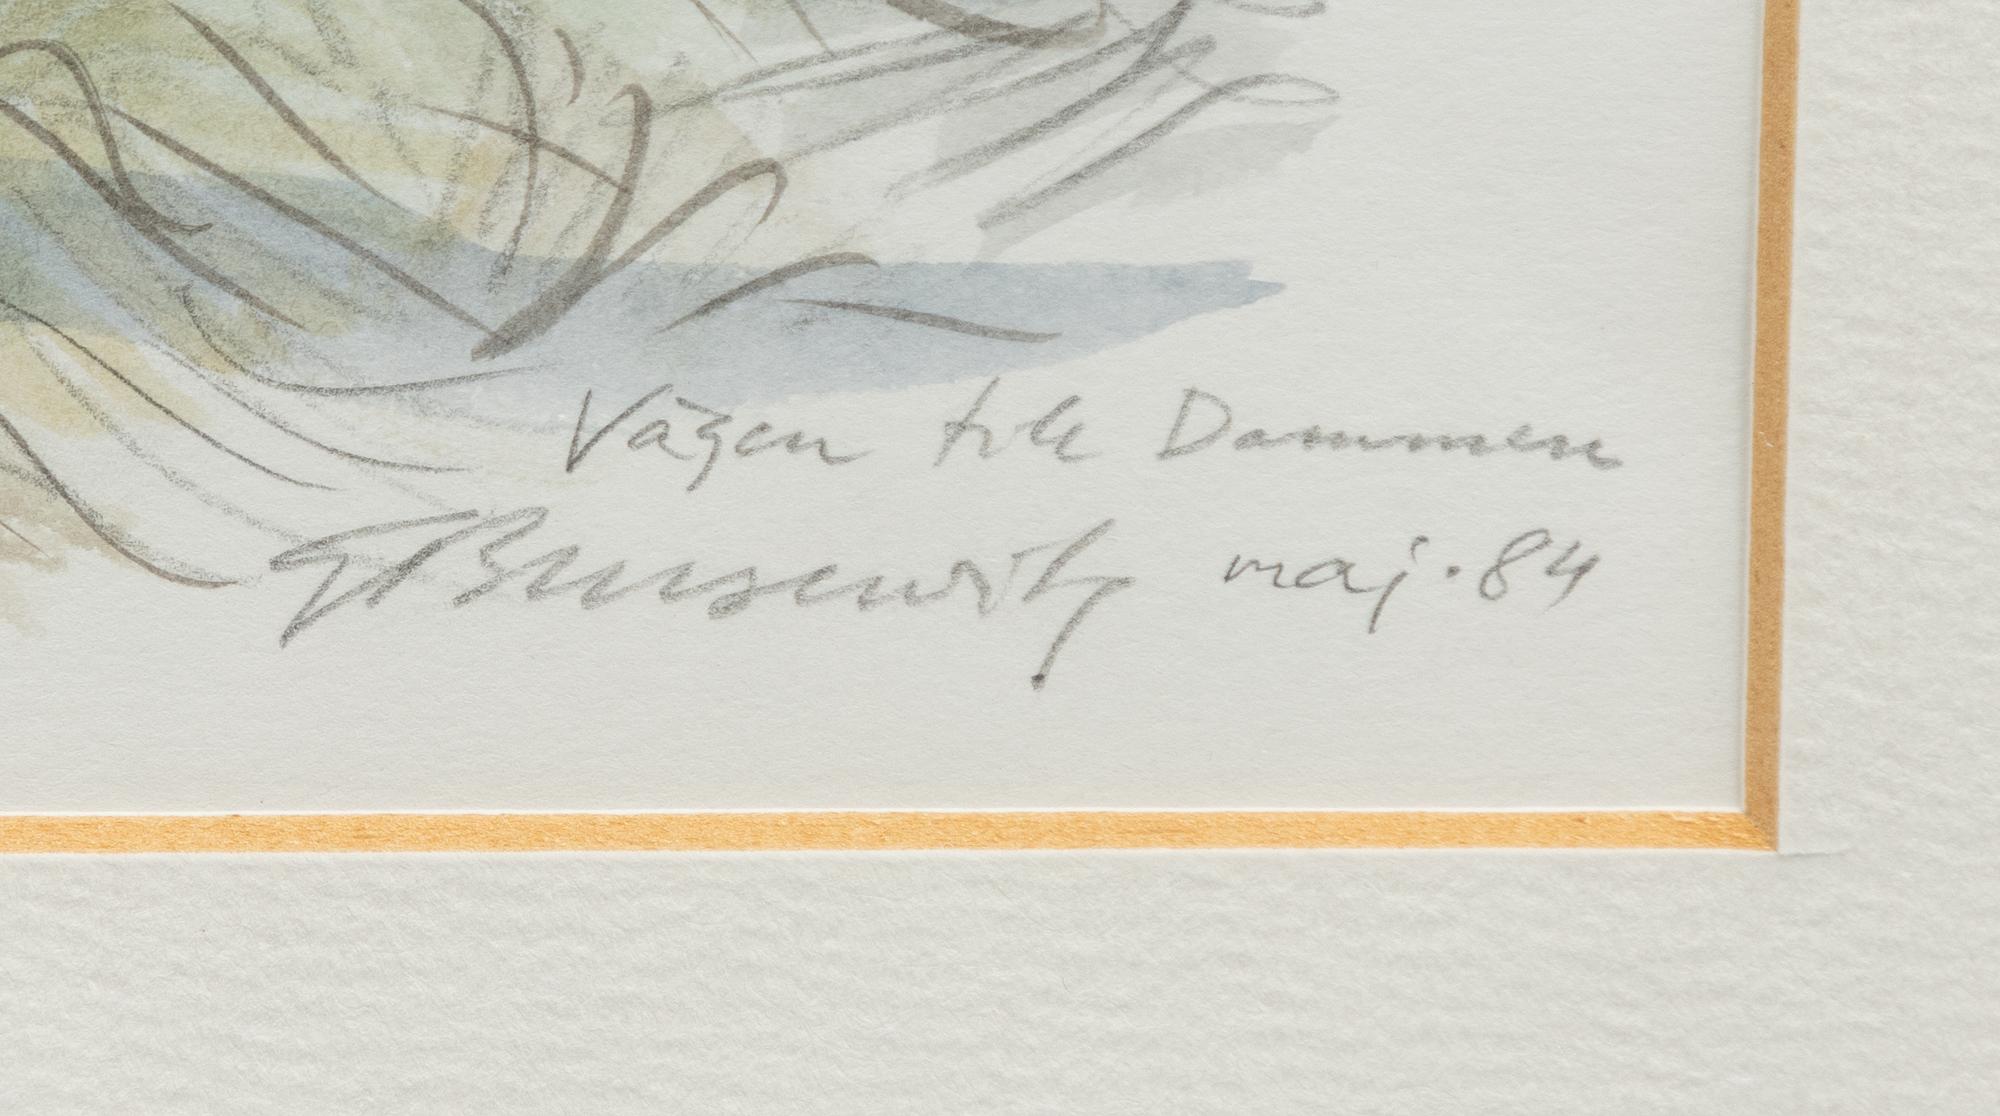 Vägen till Dammen
GBrusewitz maj. 84